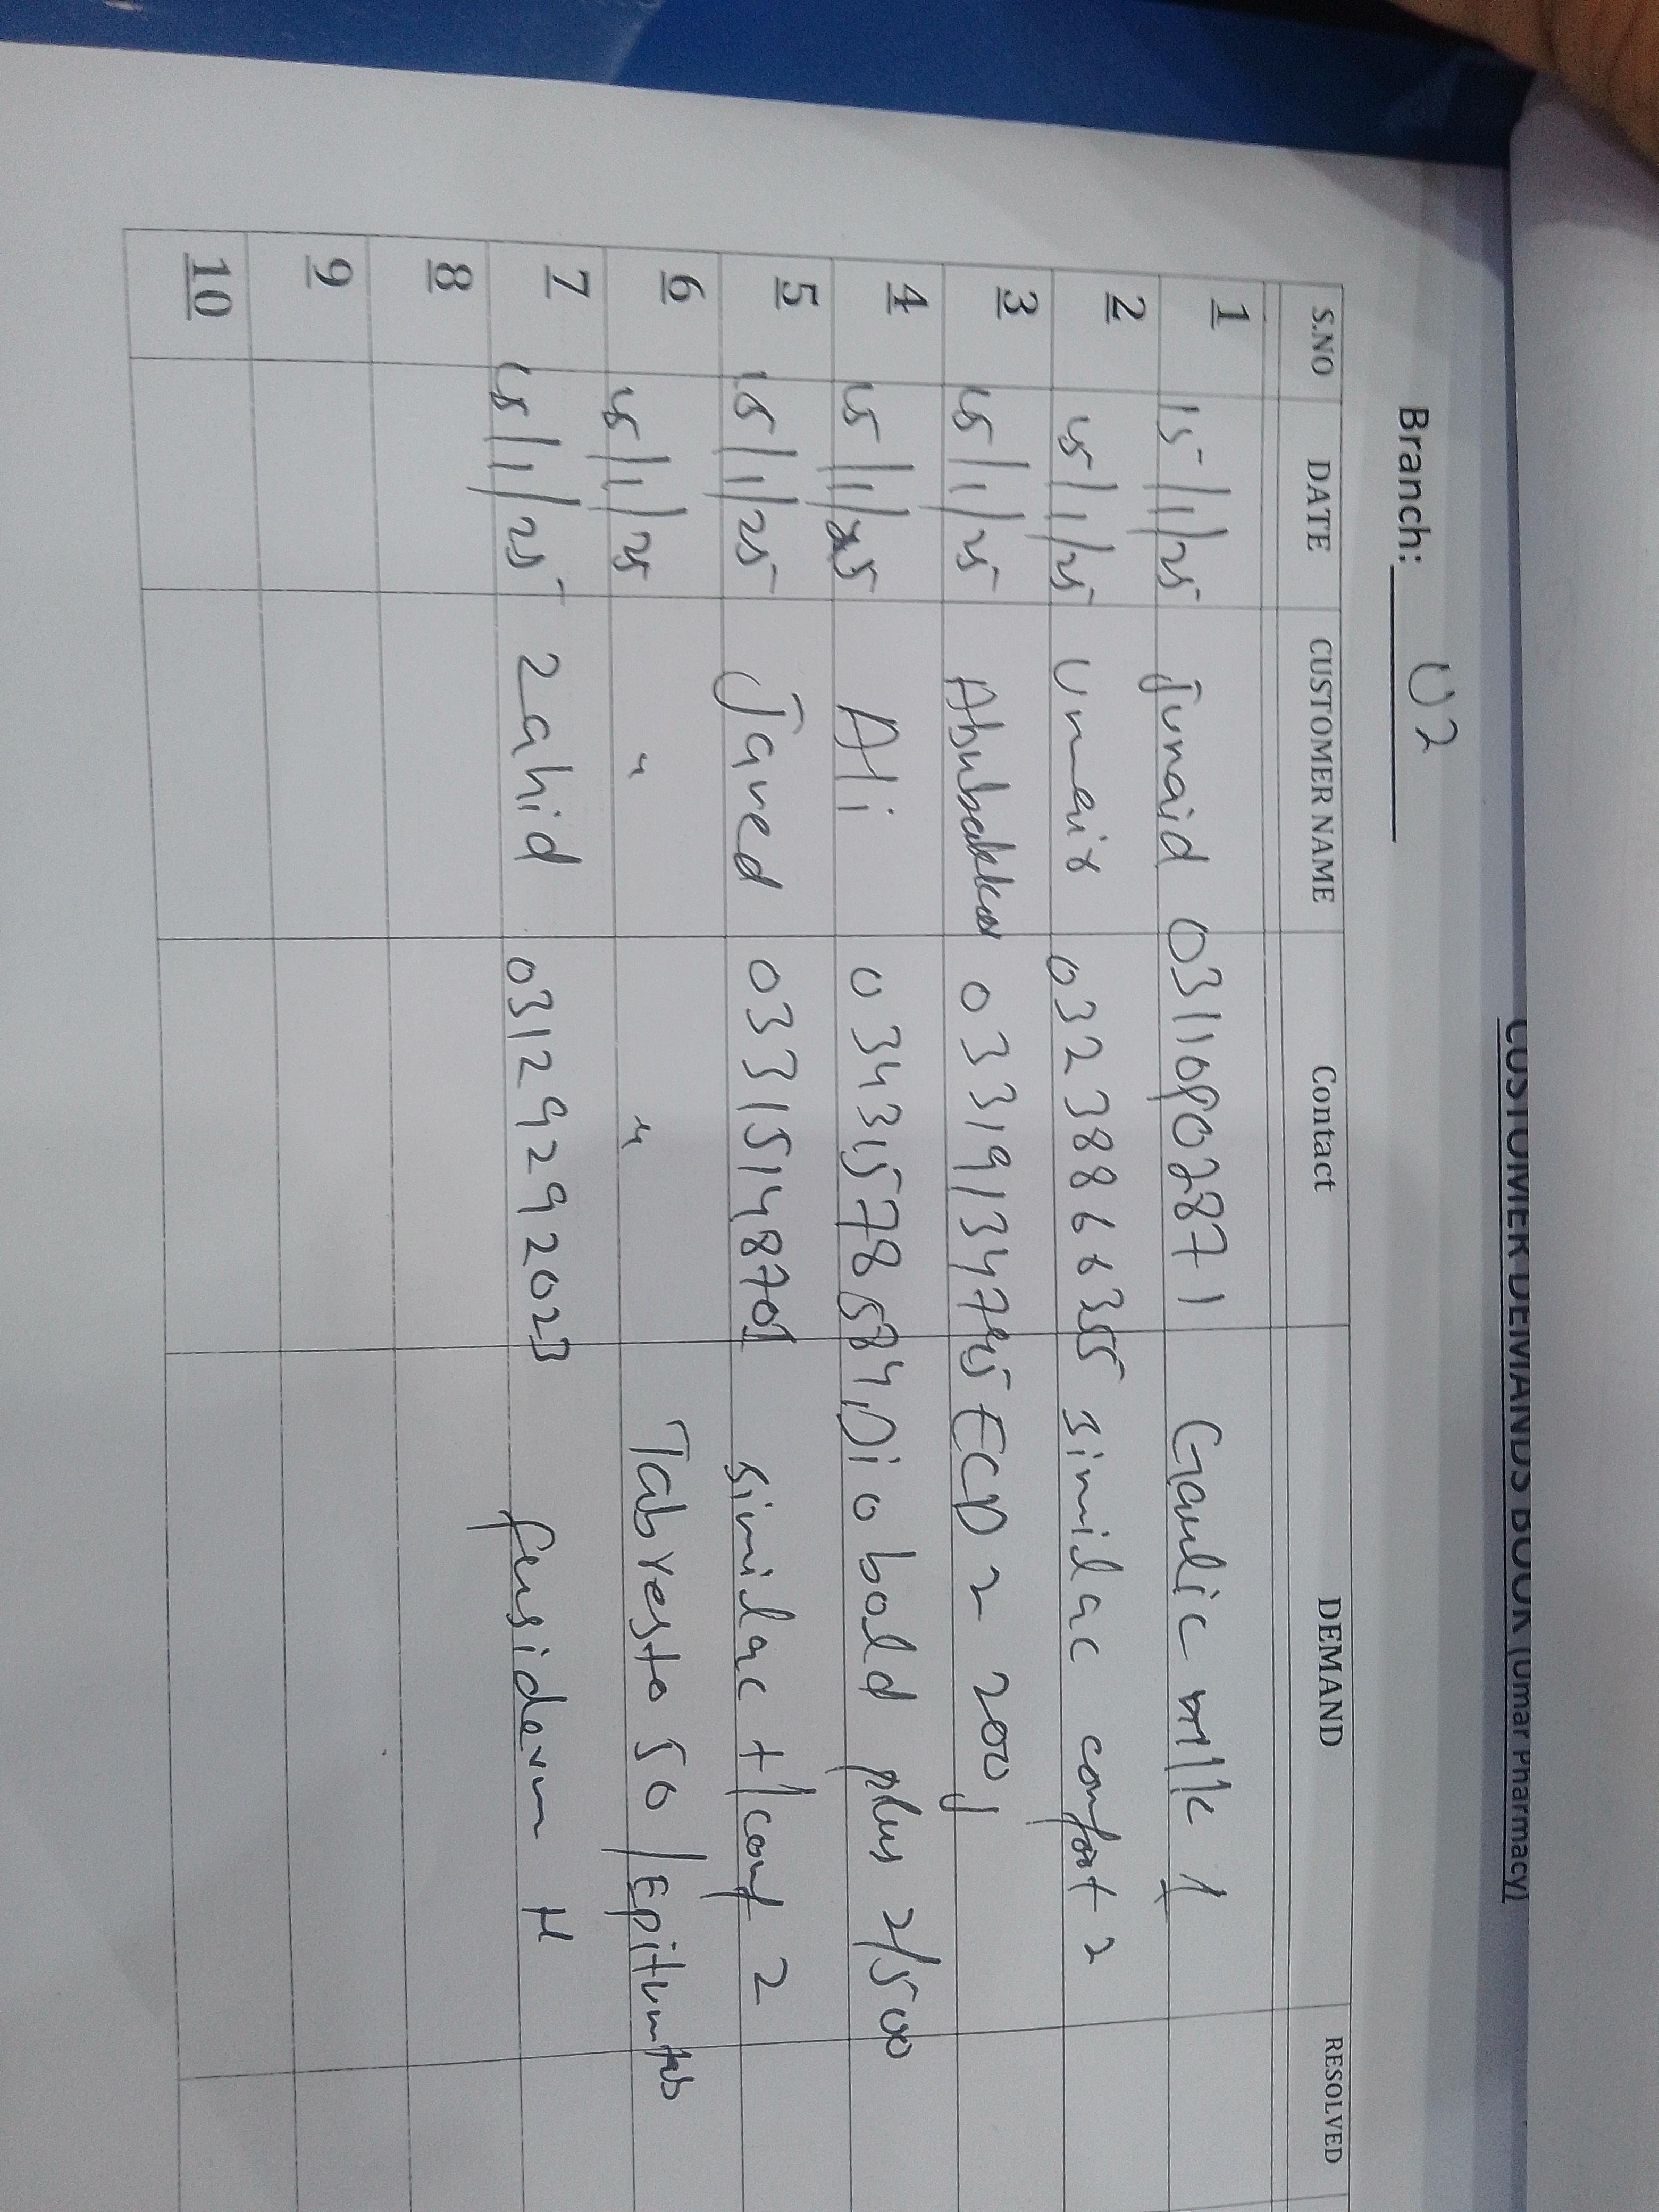 CUSTOMER DEMANDS BOOK (Umar Pharmacy)
Branch: U2
S.NO DATE CUSTOMER NAME Contact DEMAND RESOLVED
1 15/1/25 Junaid 03110902871 Gaulic milk 1
2 15/1/25 Umair 03238866355 similac comfort 2
3 15/1/25 Abubakkar 03319134795 ECD 2 200g
4 15/1/25 Ali 03431578584 Dio bold plus 2/500
5 15/1/25 Javed 03315148701 similac +/comf 2
6 15/1/25 " " Tab vesto 50/Epitum tab
7 15/1/25 Zahid 03129292023 fusiderm H
8
9
10